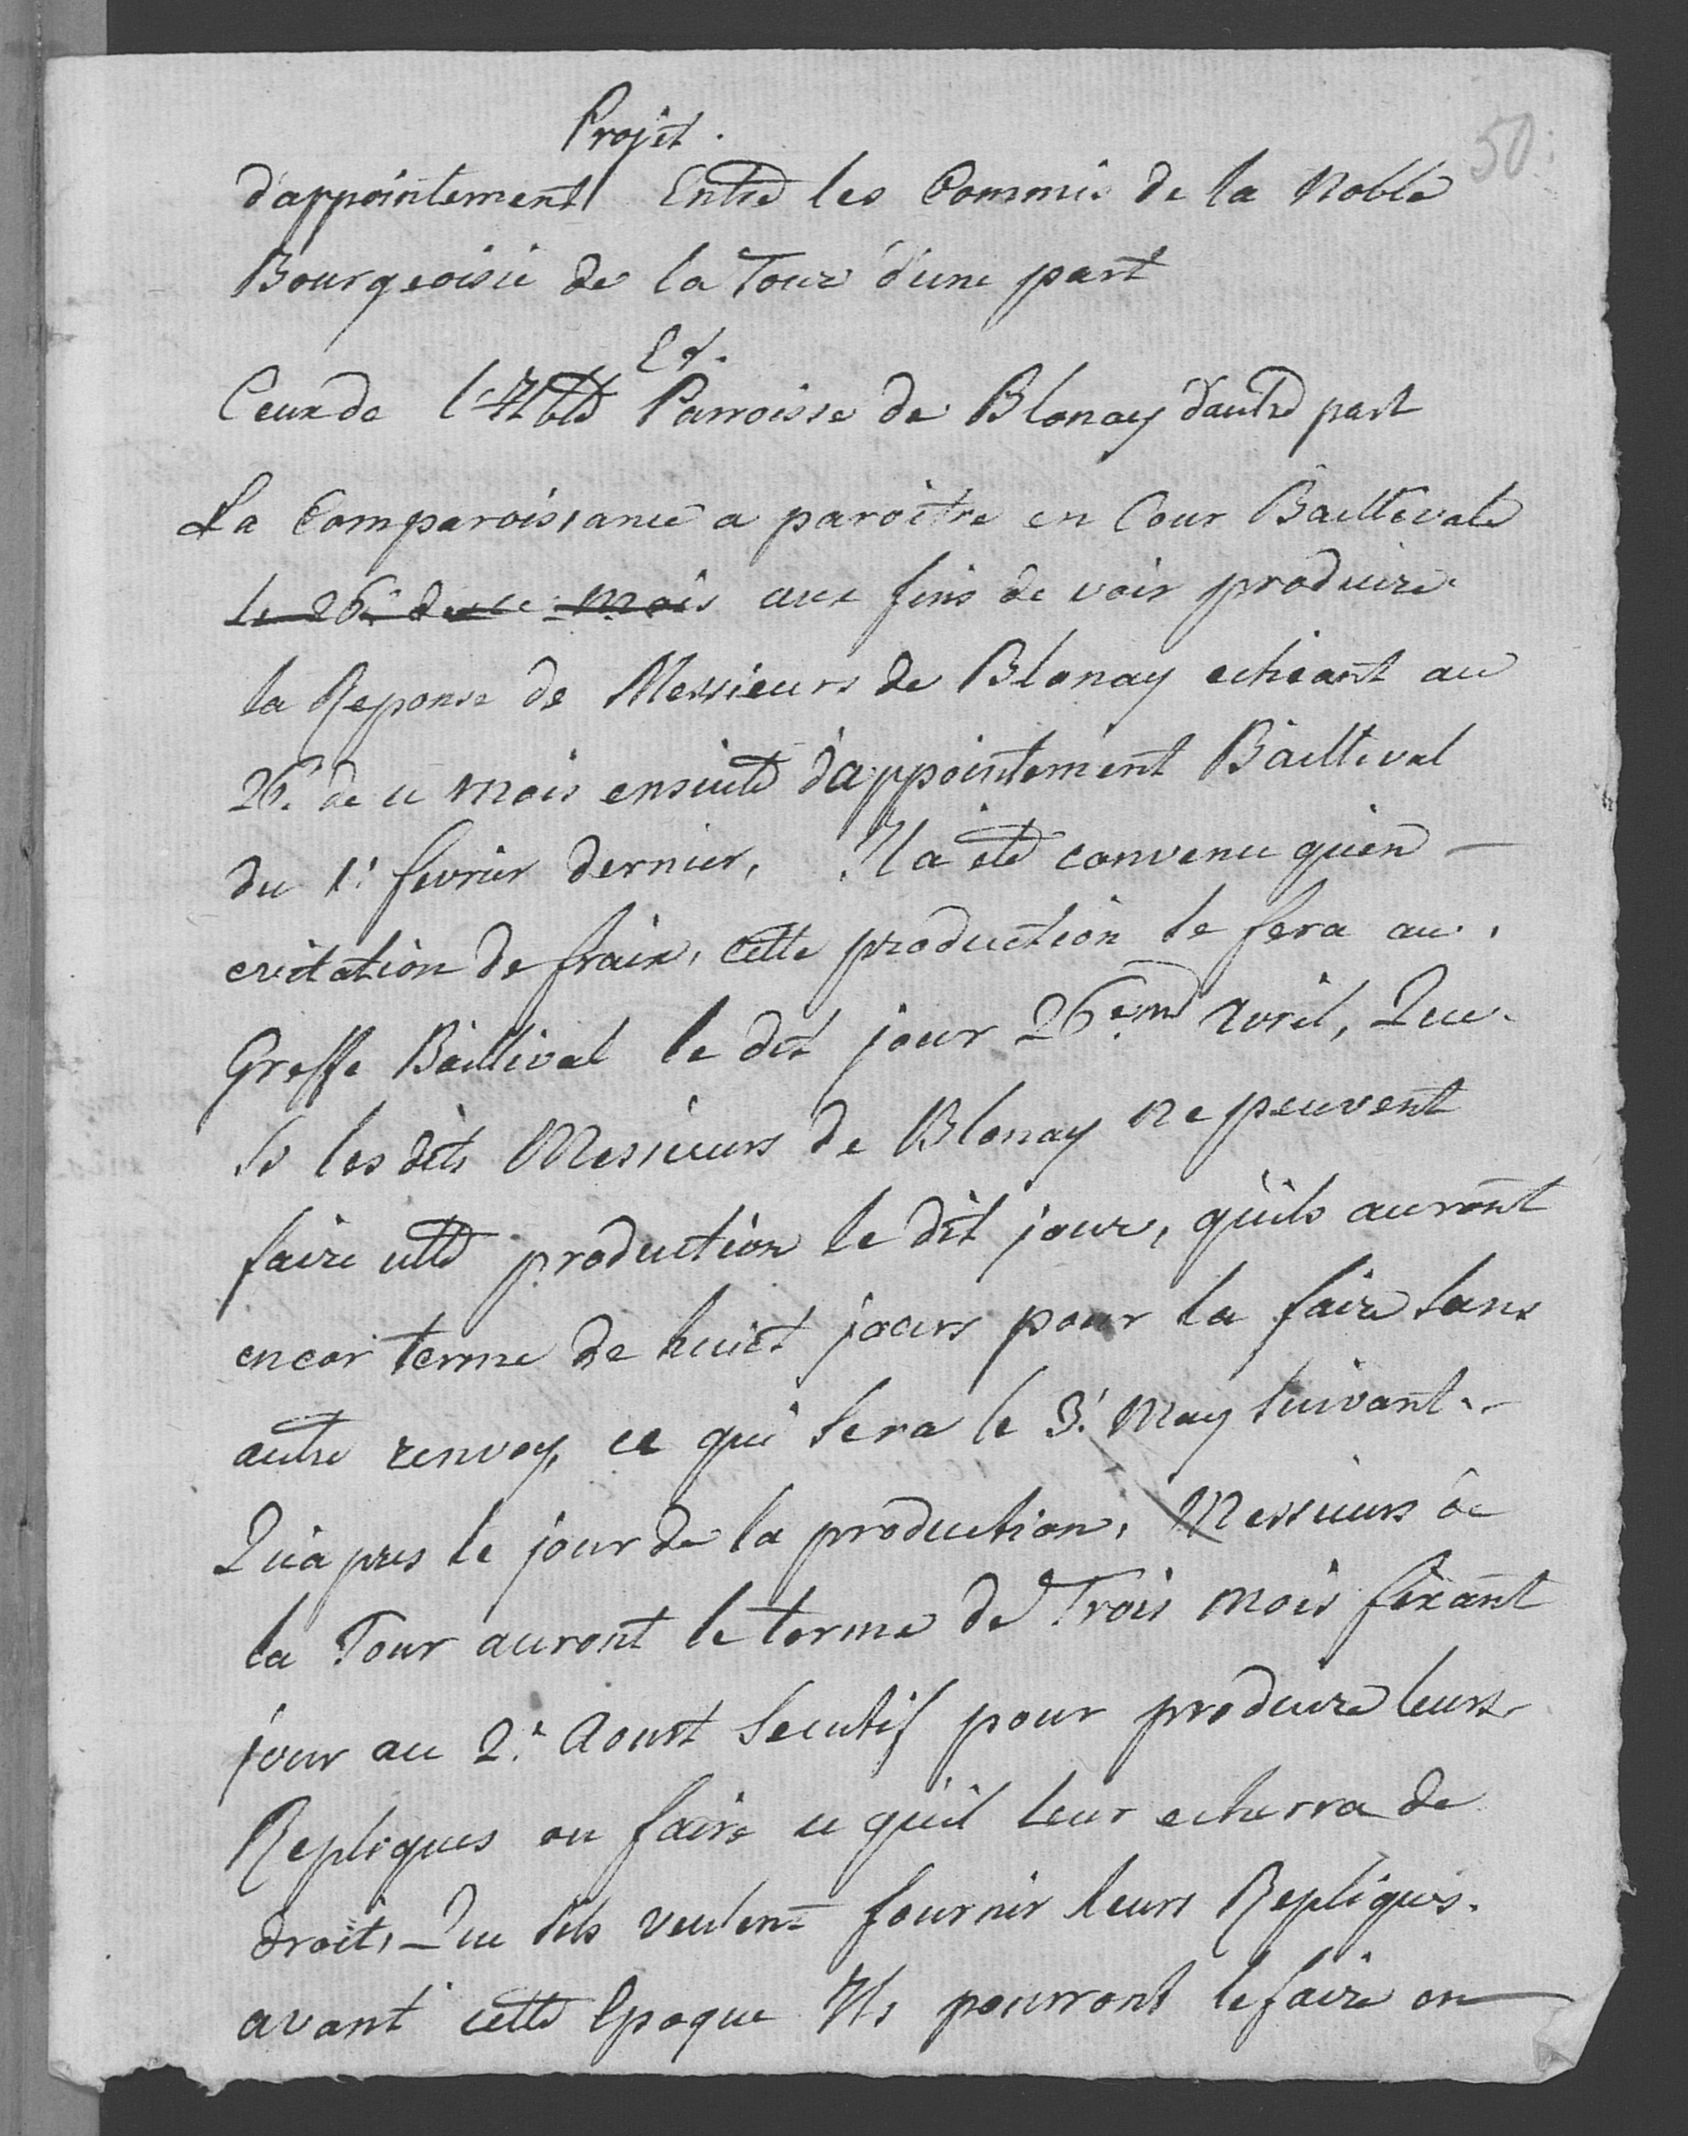 Projet.
50.
d'appointement Entre les Commis de la Noble
Bourgeoisie de la Tour d'une part
Et.
Ceux de l'Hble Parroisse de Blonay d'autre part
La Comparoissance a paroitre en Cour Baillivale
le 26e. de ce mois aux fins de voir produire
la Reponse de Messieurs de Blonay echeant au
26e. de ce mois ensuite d'appointement Baillival
du 1r. fevrier dernier, Il a été convenu qu'en
evitation de fraix, cette production se fera au
Greffe Baillival le dit jour 26eme. Avril, Que
si les dits Messieurs de Blonay ne peuvent
faire cette production le dit jour, qu'ils auront
encor terme de huict jours pour la faire sans
autre renvoy, ce qui sera le 3e. May suivant.
Qu'apres le jour de la production, Messieurs de
la Tour auront le terme de Trois mois fixant
jour au 2e. Aoust Secutif pour produire leurs
Repliques ou faire ce qu'il leur echerra de
droit, Que s'ils veulent fournir leurs Repliques
avant cette Epoque Ils pourront le faire en